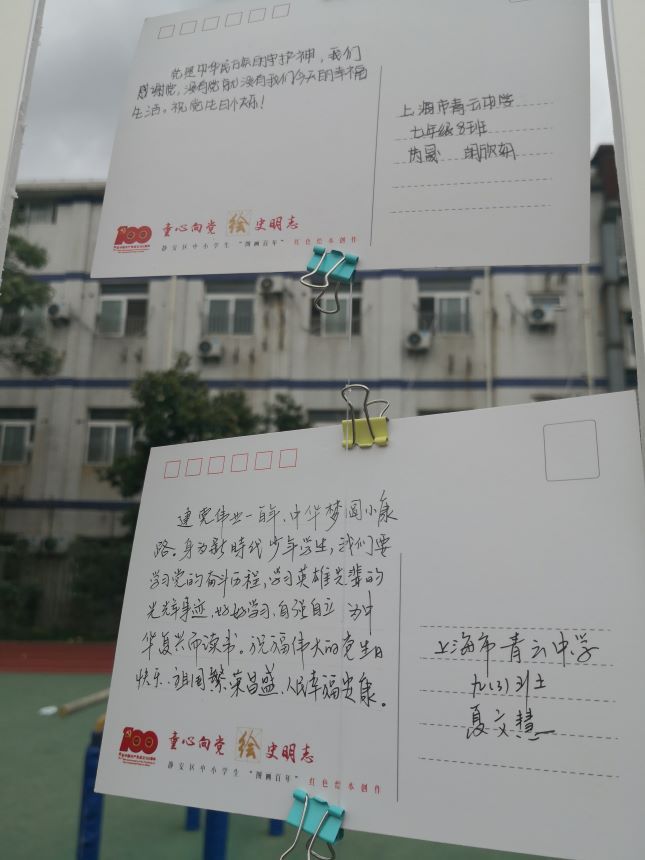 党是中华民族的守护神，我们
感谢党，没有党就没有我们今天的幸福
生活。祝党生日快乐！
上海市青云中学
七年级8班
100
童心向党 绘 史明志
静安区中小学生 "图画百年" 红色绘本创作
建党伟业一百年，中华梦圆小康
路。身为新時代少年学生，我们要
学习党的奋斗历程，学习英雄先辈的
光辉事迹，好好学习，自强自立，为中
华复兴而读书。祝福伟大的党生日
快乐，祖国繁荣昌盛，人民幸福安康。
上海市青云中学
九(3)班
夏文慧
100
童心向党 绘 史明志
静安区中小学生 "图画百年" 红色绘本创作